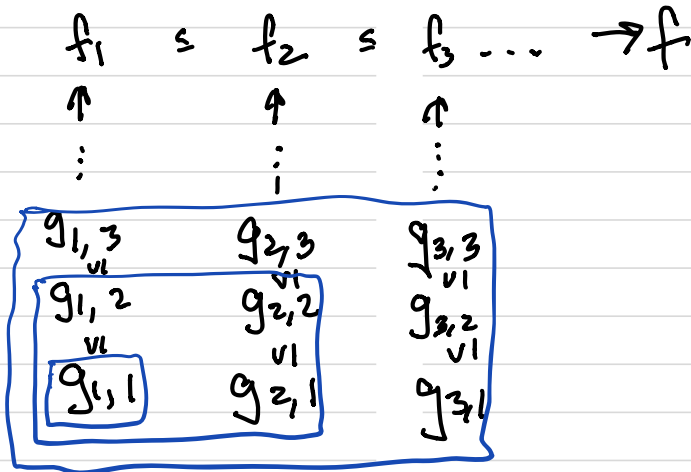 f₁ ≤ f₂ ≤ f₃ ... → f
↑ ↑ ↑
⋮ ⋮ ⋮
g₁,₃ g₂,₃ g₃,₃
∨I ∨I ∨I
g₁,₂ g₂,₂ g₃,₂
∨I ∨I ∨I
g₁,₁ g₂,₁ g₃,₁